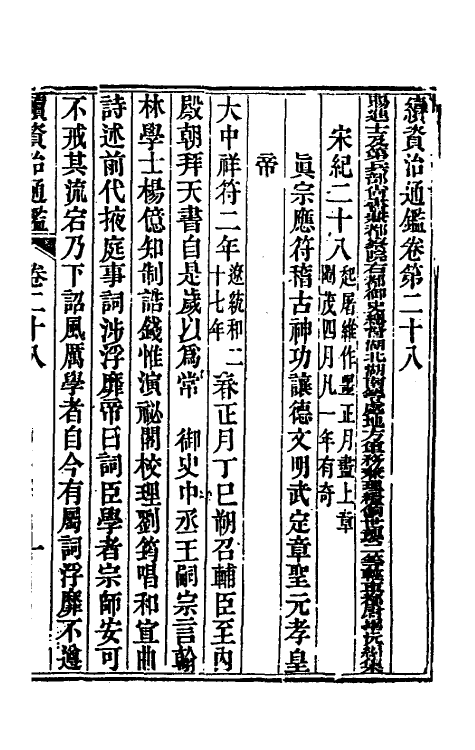 續資治通鑑卷第二十八
賜進士及第兵部尚書兼都察院右都御史總督湖北湖南等處地方軍務兼理糧餉世襲二等輕車都尉畢沅編集
宋紀二十八起屠維作噩正月盡上章閹茂四月凡一年有奇
眞宗應符稽古神功讓德文明武定章聖元孝皇
帝
大中祥符二年遼統和二十七年春正月丁巳朔召輔臣至內
殿朝拜天書自是歲以爲常　御史中丞王嗣宗言翰
林學士楊億知制誥錢惟演祕閣校理劉筠唱和宣曲
詩述前代掖庭事詞涉浮靡帝曰詞臣學者宗師安可
不戒其流宕乃下詔風厲學者自今有屬詞浮靡不遵
續資治通鑑
卷二十八
一